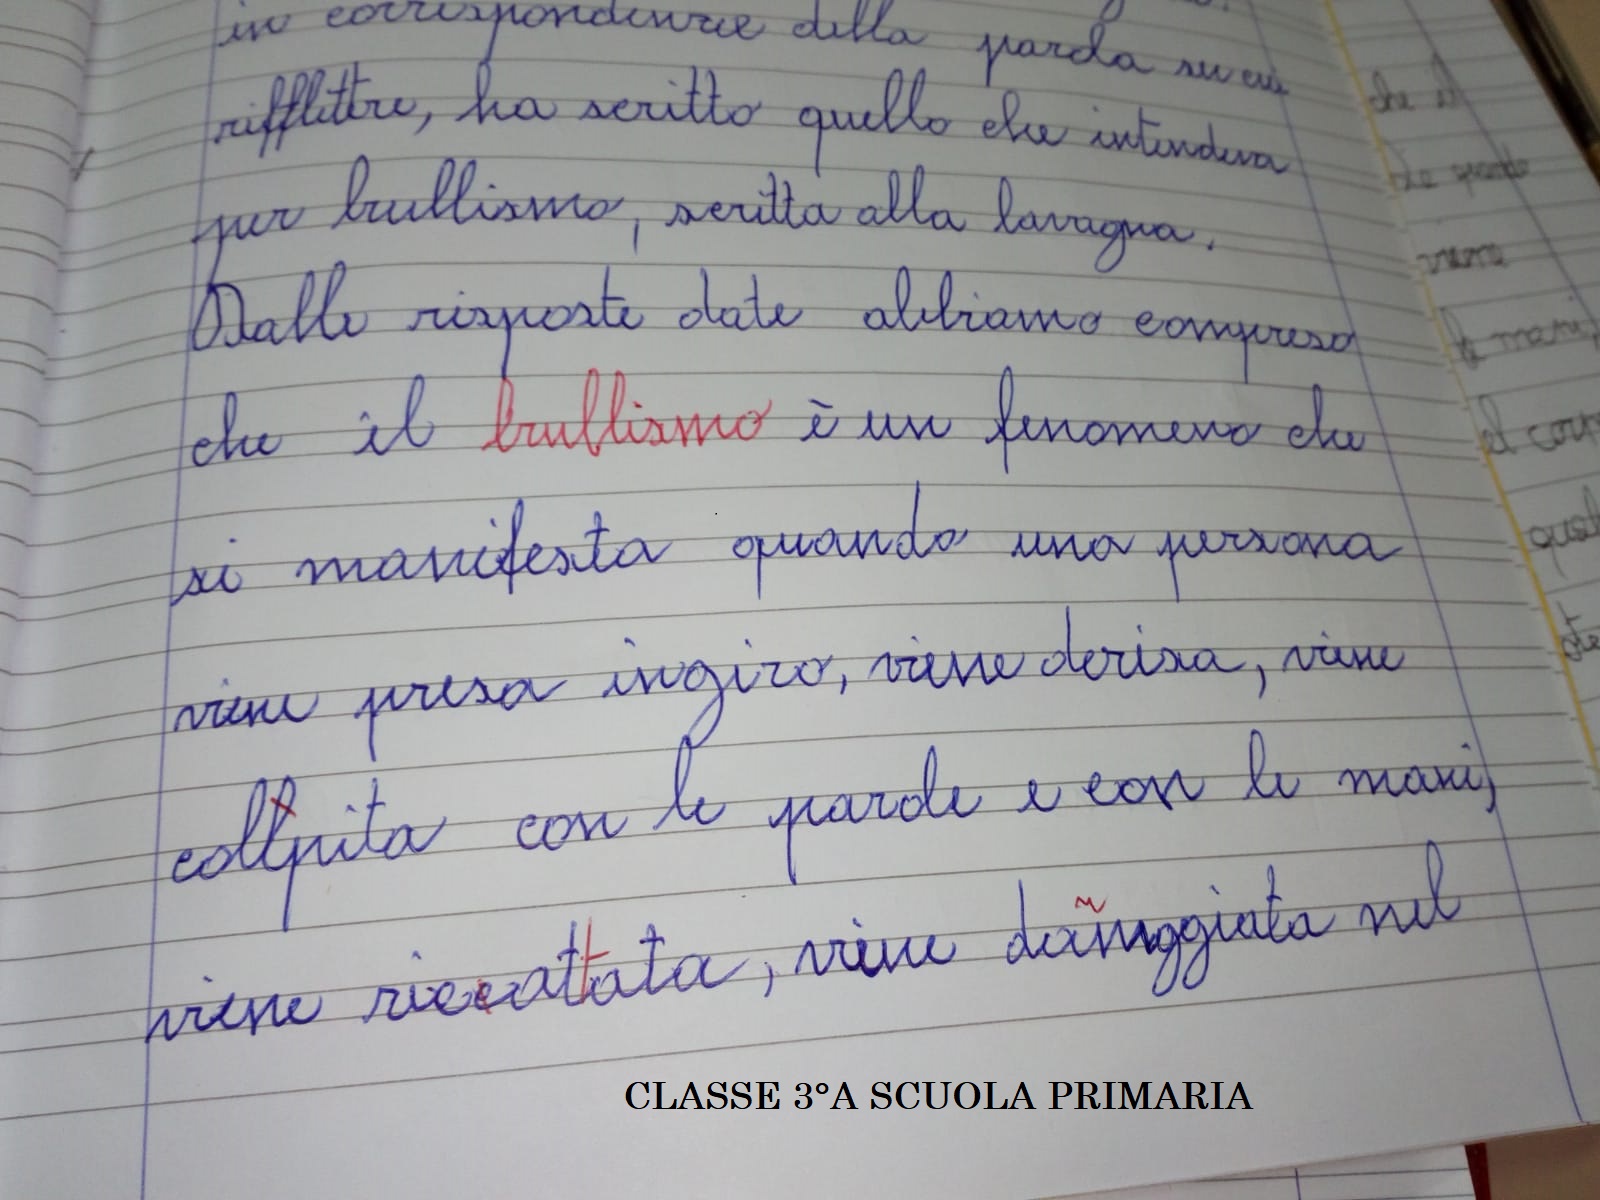 in corrispondenze della parola su cui
rifflettere, ha scritto quello che intendeva
per bullismo, scritta alla lavagna.
Dalle risposte date abbiamo compreso
che il bullismo è un fenomeno che
si manifesta quando una persona
viene presa in giro, viene derisa, viene
collpita con le parole e con le mani,
viene riccattata, viene danneggiata nel
CLASSE 3°A SCUOLA PRIMARIA
che il
viene
le mani,